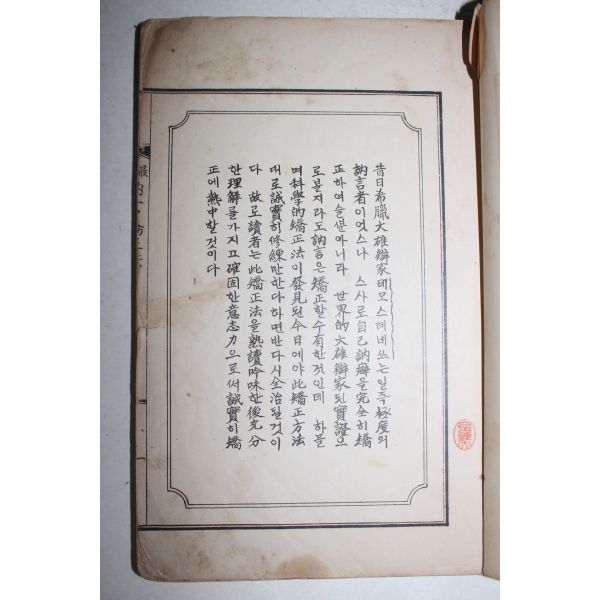 昔日希臘大雄辯家데모스테네쓰는일즉極度의
訥言者이엇스나 스사로自己訥癖을完全히矯
正하여슬뿐아니라 世界的大雄辯家된實證으
로볼지라도訥言은矯正할수有한것인데 하믈
며科學的矯正法이發見된今日에야此矯正方法
대로誠實히修練만한다하면반다시全治될것이
다 故로讀者는此矯正法을熟讀吟味한後充分
한理解를가지고確固한意志力으로써誠實히矯
正에熱中할것이다